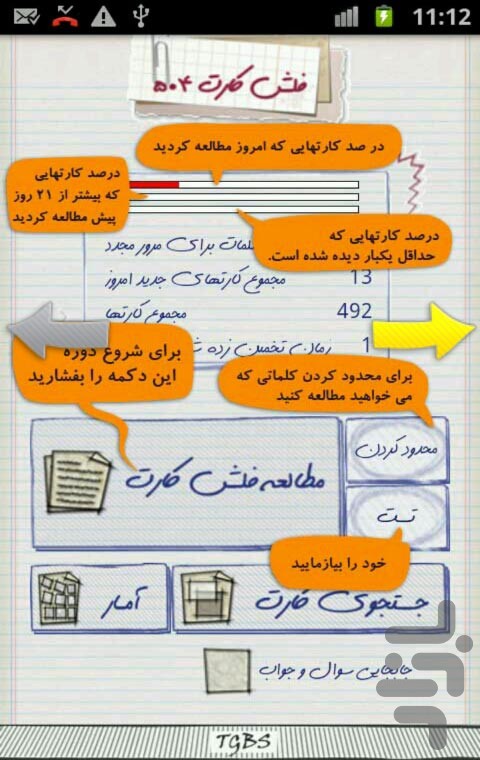 11:12
فلش کارت ۵۰۴
در صد کارتهایی که امروز مطالعه کردید
درصد کارتهایی
که بیشتر از ۲۱ روز
پیش مطالعه کردید
درصد کارتهایی که
حداقل یکبار دیده شده است.
کلمات برای مرور مجدد
13 مجموع کارتهای جدید امروز
492 مجموع کارتها
1 زمان تخمین زده
برای شروع دوره
این دکمه را بفشارید
برای محدود کردن کلماتی که
می خواهید مطالعه کنید
محدود کردن
مطالعه فلش کارت
تست
خود را بیازمایید
جستجوی کارت
آمار
جابجایی سوال و جواب
TGBS